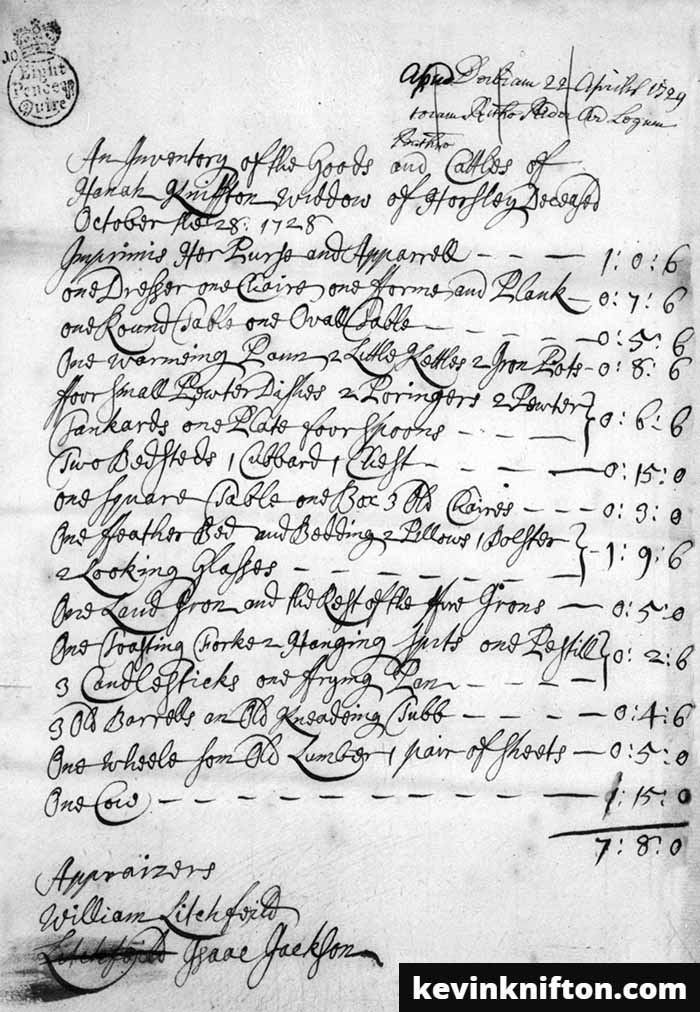 Eight
Pence p
Quire
Apud Derbiam 22 Aprilis 1729
Coram
An Inventory of the Goods and Cattles of
Hanah Kniffton Widdow of Horsley Deceased
October the 28: 1728
Imprimis Her Purse and Apparrell - - - 1: 0: 6
one Dresser one Chaire one fforme and Plank - 0: 7: 6
one Round Table one Ovall Table - - - - - 0: 5: 6
One warmeing Pann 2 Little Kettles 2 Iron Pots - 0: 8: 6
ffoor small Pewter Dishes 2 Poringers 2 Pewter
Tankards one Plate foor spoons - - - - 0: 6: 6
Two Bedsteds 1 Cubbard 1 Chest - - - - 0: 15: 0
one square Table one Box 3 Old Chaires - - - 0: 3: 0
One ffeather Bed and Bedding 2 Pillows 1 Bolster
2 Looking Glasses - - - - - - - - 1: 9: 6
One Land Iron and the Rest of the ffire Irons - 0: 5: 0
One Toasting Forke 2 Hanging Spits one Pestill
3 Candlesticks one ffrying Pan - - - - 0: 2: 6
3 Old Barrells an Old Kneadeing Tubb - - - 0: 4: 6
One Wheele som Old Lumber 1 pair of sheets - 0: 5: 0
One Cow - - - - - - - - - - - 1: 15: 0
7: 8: 0
Appraizers
William Litchfeild
Isaac Jackson
kevinknifton.com